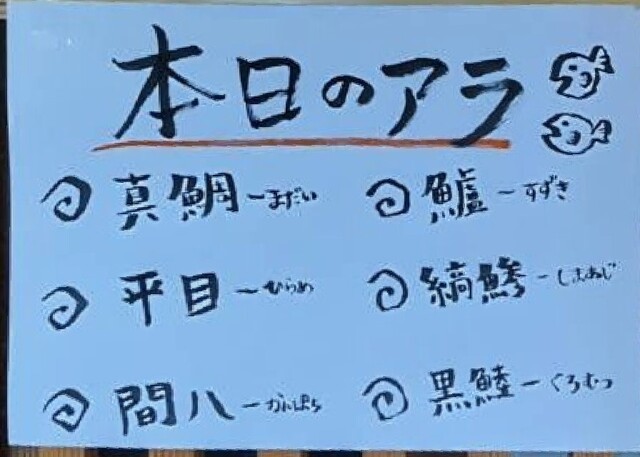 本日のアラ
真鯛～まだい
平目～ひらめ
間八～かんぱち
鱸～すずき
縞鯵～しまあじ
黒鯥～くろむつ